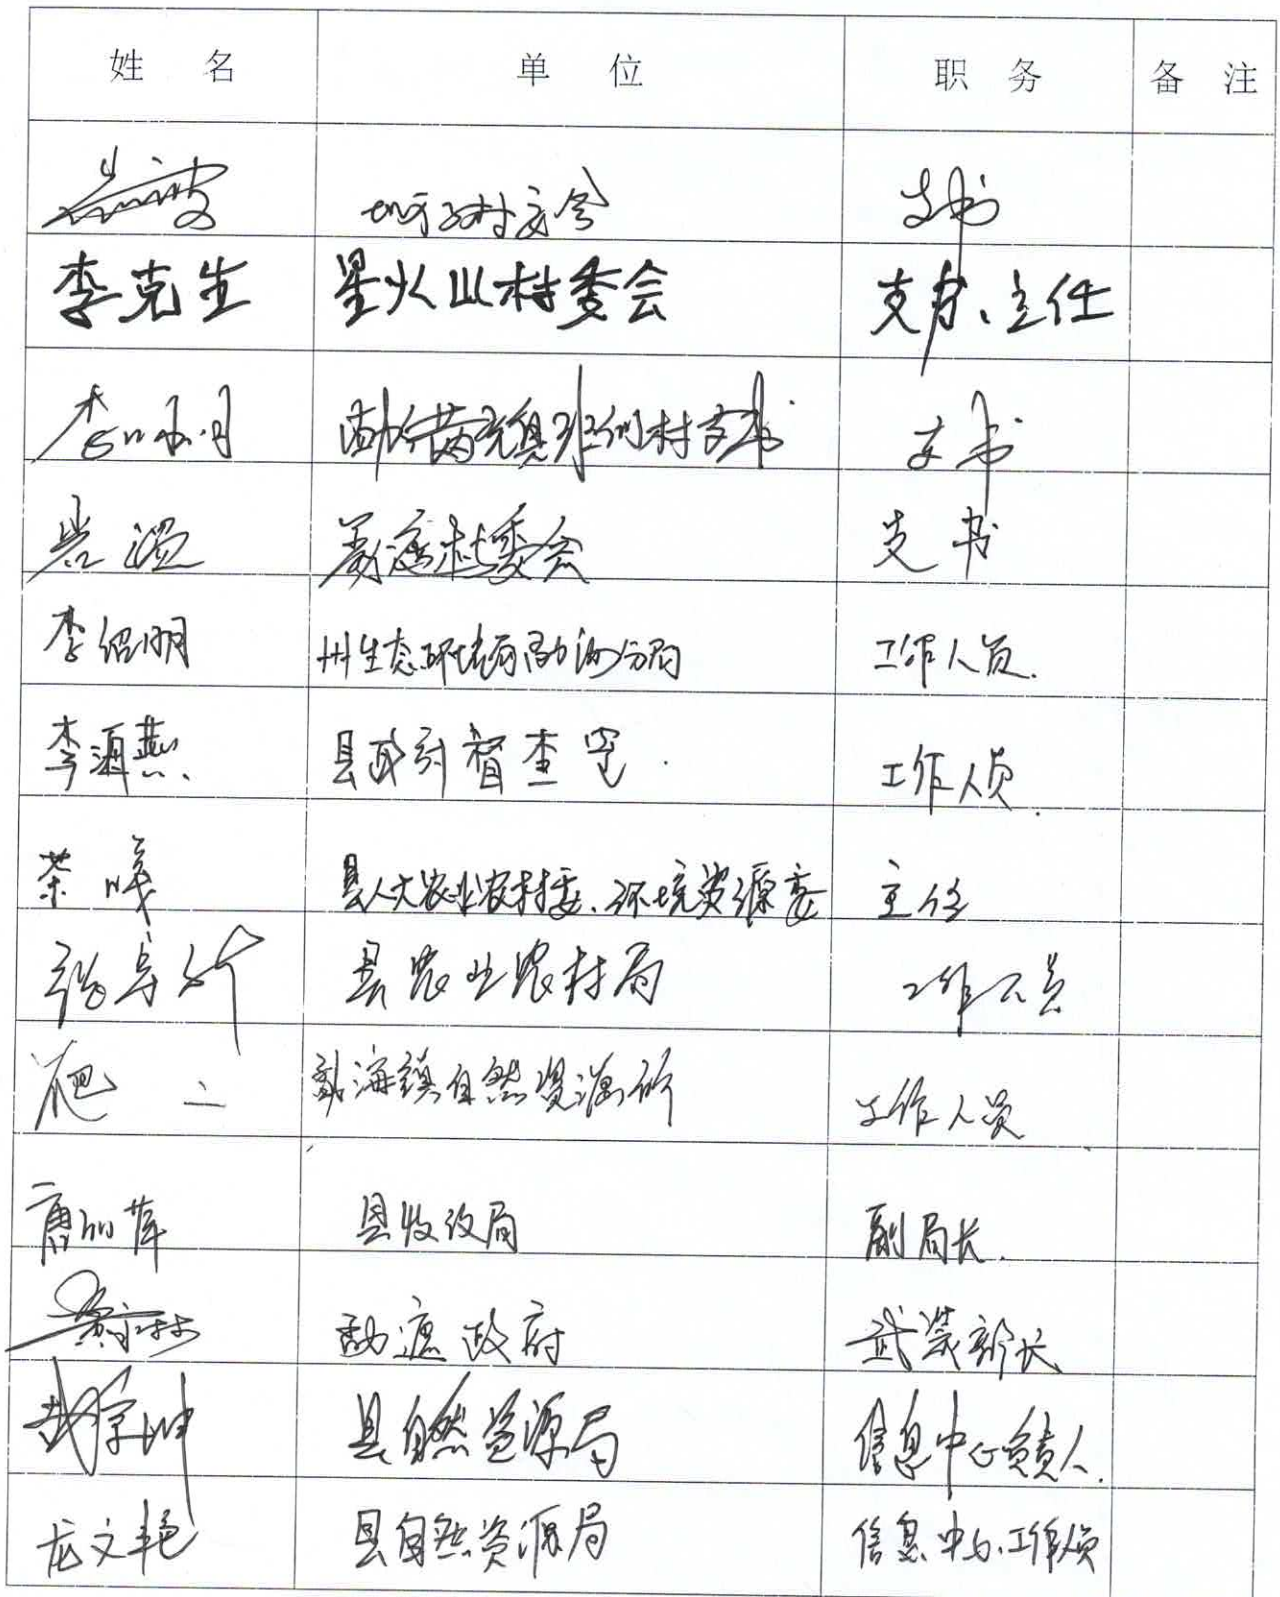 姓 名 单 位 职 务 备 注
村委会 支书
李克生 星火山村委会 支书、主任
李 村支书 支书
岩温 勐遮村委会 支书
李绍明 州生态环境局勐海分局 工作人员.
李涌燕 县政府督查室 工作人员
茶 县人大农业农村委、环境资源委 主任
县农业农村局 工作人员
二 勐海镇自然资源所 工作人员
唐 萍 县发改局 副局长.
黄 林 勐遮政府 武装部长
宗坤 县自然资源局 信息中心负责人.
龙文艳 县自然资源局 信息中心工作人员